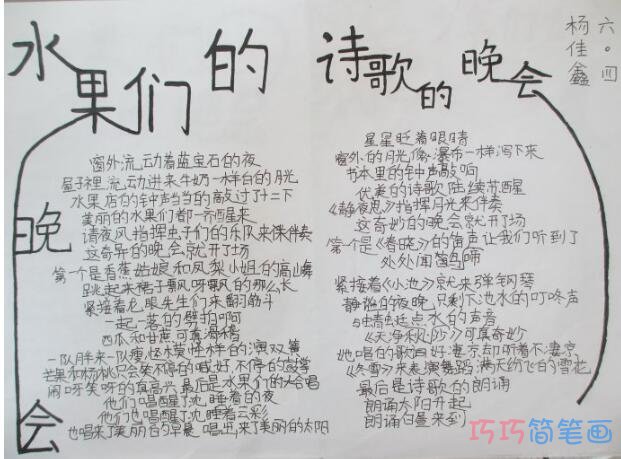 水果们的晚会
窗外流动着蓝宝石的夜
屋子裡流动进来牛奶一样白的月光
水果店的钟当当的敲过了十二下
美丽的水果们都一齐醒来
请夜风指挥虫子们的乐队来伴奏
这奇异的晚会就开了场
第一个是香蕉姑娘和凤梨小姐的高山舞
跳起来裙子飘呀飘的那么长
紧接着龙眼先生们来翻筋斗
一起一落的劈拍啊
西瓜和甘蔗可真滑稽
一队胖来一队瘦怪模怪样的演双簧
芒果和杨桃只会笑不停的喊好不停的鼓掌
闹呀笑呀的真高兴最后是水果们的大合唱
他们唱醒了沉睡着的夜
他们也唱醒了沉睡着云彩
也唱来了美丽的早晨 唱出来了美丽的太阳
诗歌的晚会
六。四
杨佳鑫
星星眨着眼睛
窗外的月光像瀑布一样泻下来
书本里的钟声敲响
优美的诗歌陆续苏醒
《静夜思》指挥月光来伴奏
这奇妙的晚会就开了场
第一个是《春晓》的笛声让我们听到了
处处闻啼鸟
紧接着《小池》就来弹钢琴
静谧的夜晚,只剩下池水的叮咚声
与蜻蜓点水的声音
《天净沙秋》可真奇妙
她唱的歌曲好凄凉却听着不凄凉
《冬雪》来表演舞蹈,满天纷飞的雪花
最后是诗歌的朗诵
朗诵太阳升起
朗诵白昼来到
巧巧简笔画